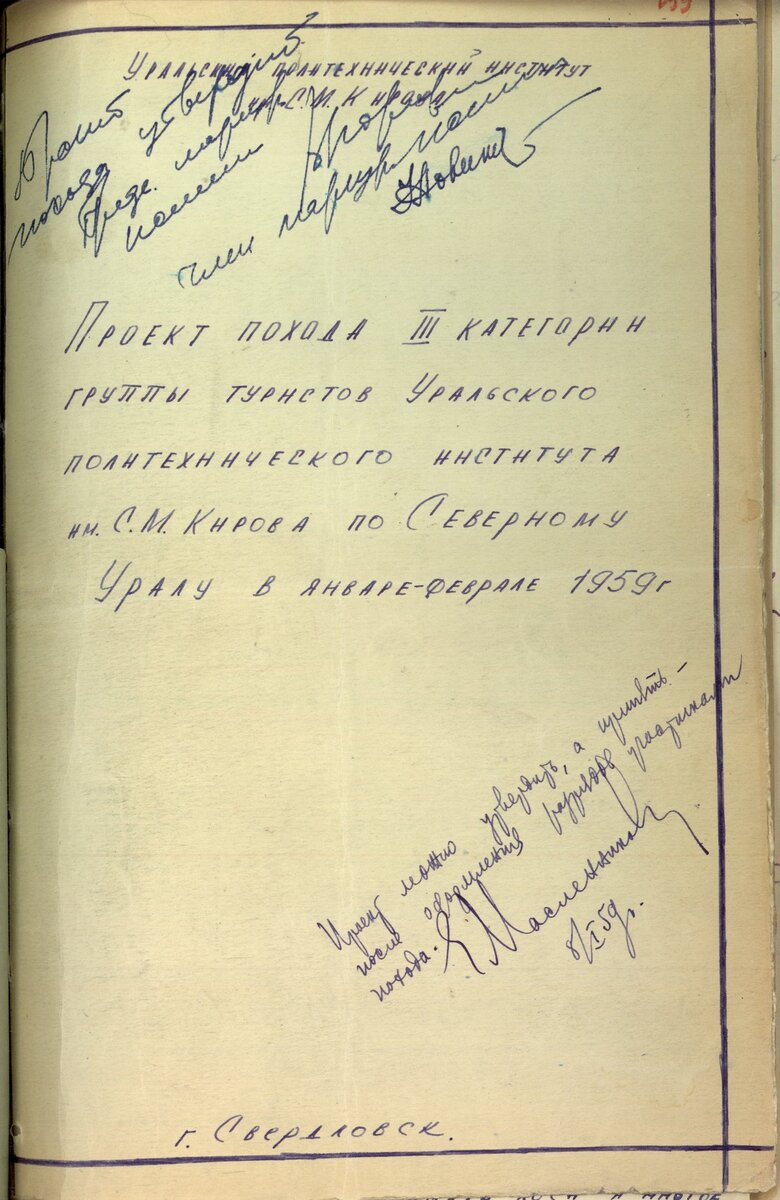 199
Уральский политехнический институт
им. С.М. Кирова
Проект
похода утвердить
Пред. маршр.
комиссии
член маршр. комиссии
Проект похода III категарии
группы туристов Уральского
политехнического института
им. С.М. Кирова по Северному
Уралу в январе-феврале 1959г
Проект можно утвердить, а принять –
после оформления разрядов участниками
похода. Е. Масленников
8/I 59г.
г. Свердловск.